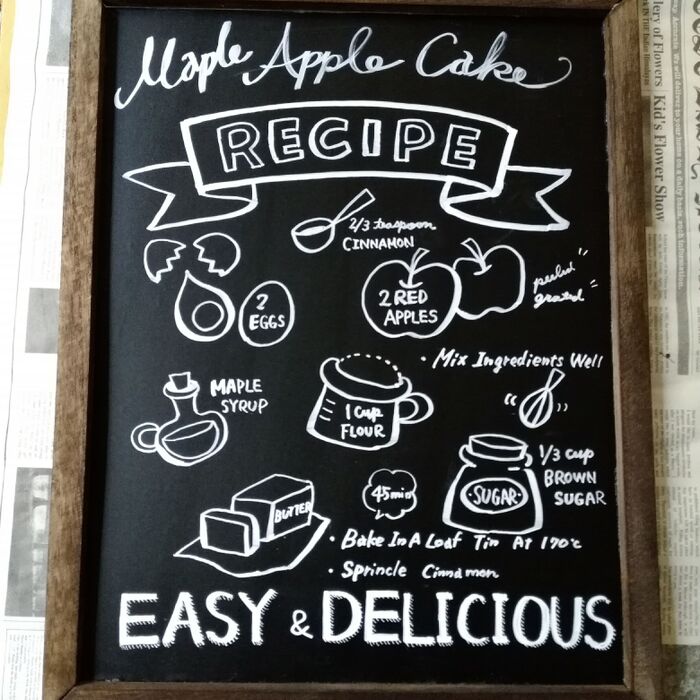 Maple Apple Cake
RECIPE
2/3 teaspoon
CINNAMON
2
EGGS
2 RED
APPLES
peeled
grated
• Mix Ingredients Well
MAPLE
SYRUP
1 Cup
FLOUR
1/3 cup
BROWN
SUGAR
•SUGAR•
BUTTER
45min
• Bake In A Loaf Tin At 170°c
• Sprincle Cinnamon
EASY & DELICIOUS
llery of Flowers
Kid's Flower Show